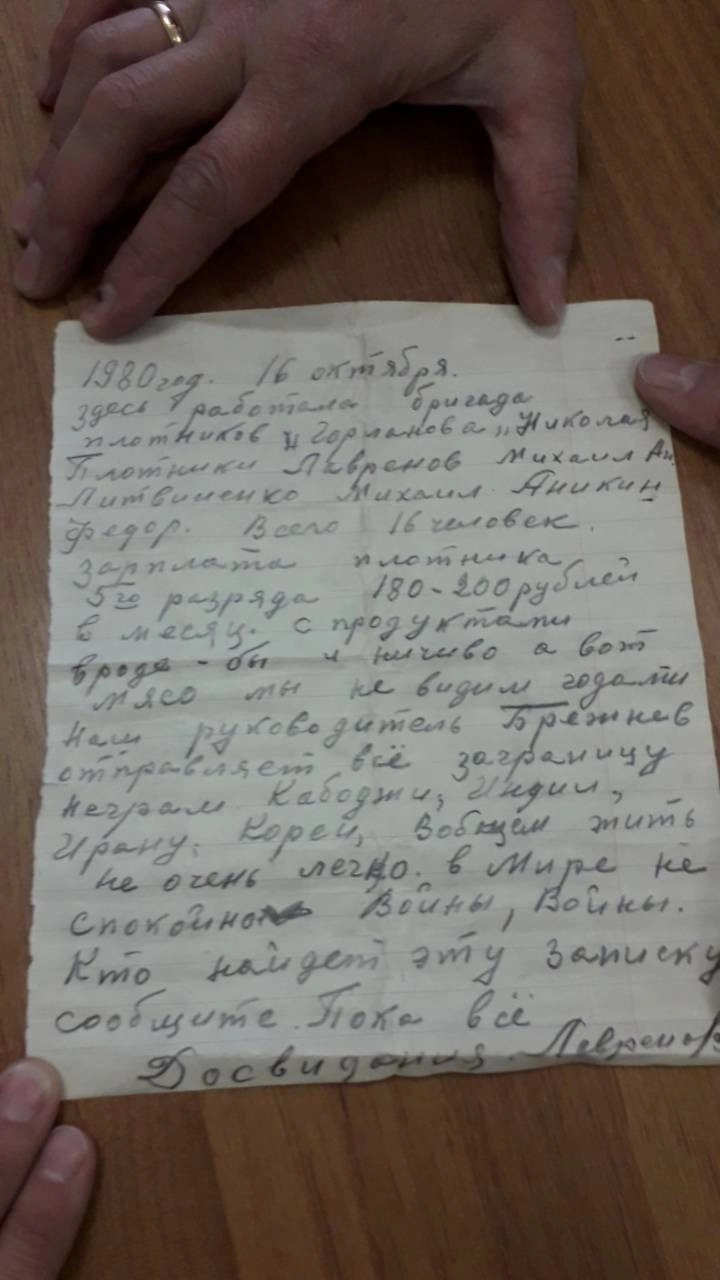 1980 год. 16 октября.
здесь работала бригада
плотников „Горланова„ Николая
Плотники Лавренов Михаил Ан.
Литвиненко Михаил. Аникин
Федор. Всего 16 человек.
зарплата плотника
5го разряда 180-200 рублей
в месяц. с продуктами
вроде-бы и ничиво а вот
мясо мы не видим годами
наш руководитель Брежнев
отправляет всё заграницу
неграм Кабоджи, Индии,
Ирану, Кореи, Вобщем жить
не очень легко. в Мире не
спокойно Войны, Войны.
Кто найдет эту записку
сообщите. Пока всё
Досвидания. Лавренов